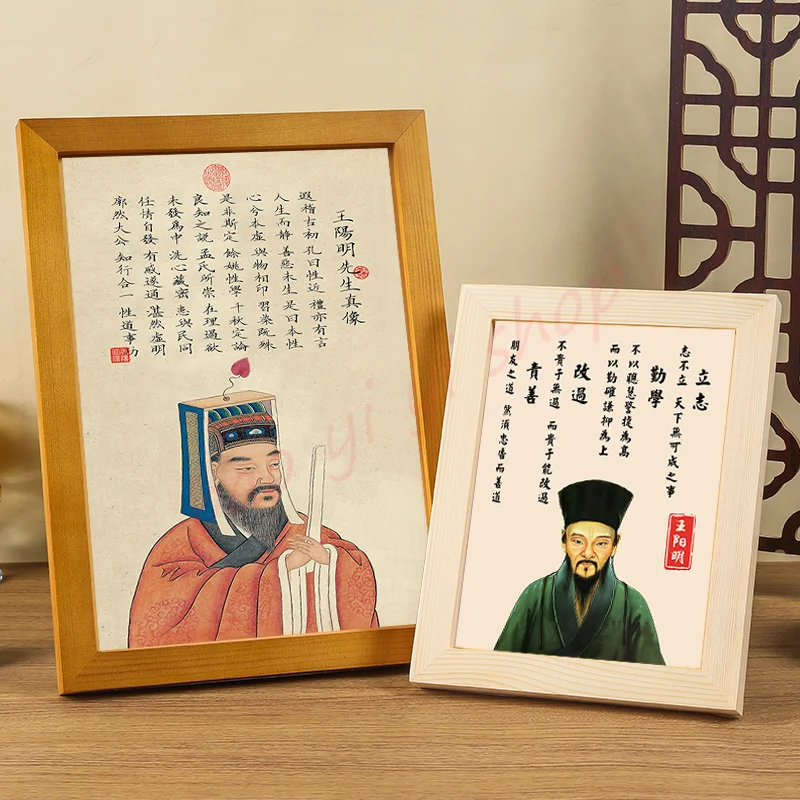 王陽明先生真像
遐稽古初 孔曰性近 禮亦有言
人生而静 善惡未生 是曰本性
心兮本虛 與物相印 習染既殊
是非斯定 餘姚性學 千秋定論
良知之說 孟氏所崇 在理遏欲
未發爲中 洗心藏密 患與民同
任情自發 有感遂通 湛然虛明
廓然大公 知行合一 性道事功
立志
志不立 天下無可成之事
勤學
不以聰慧警捷為高
而以勤確謙抑為上
改過
不貴于無過 而貴于能改過
責善
朋友之道 然須忠告而善道
王阳明
yi yi shop